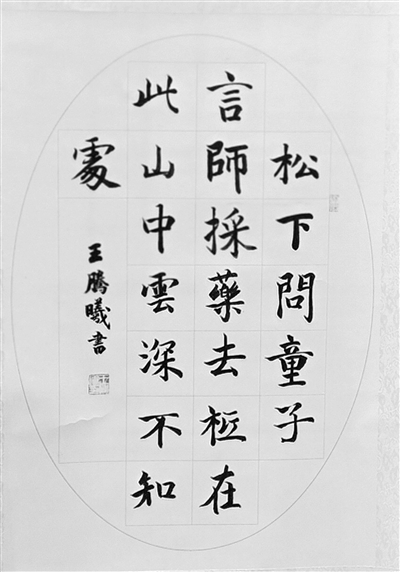 松下問童子
言師採藥去秖在
此山中雲深不知
處
王騰曦書